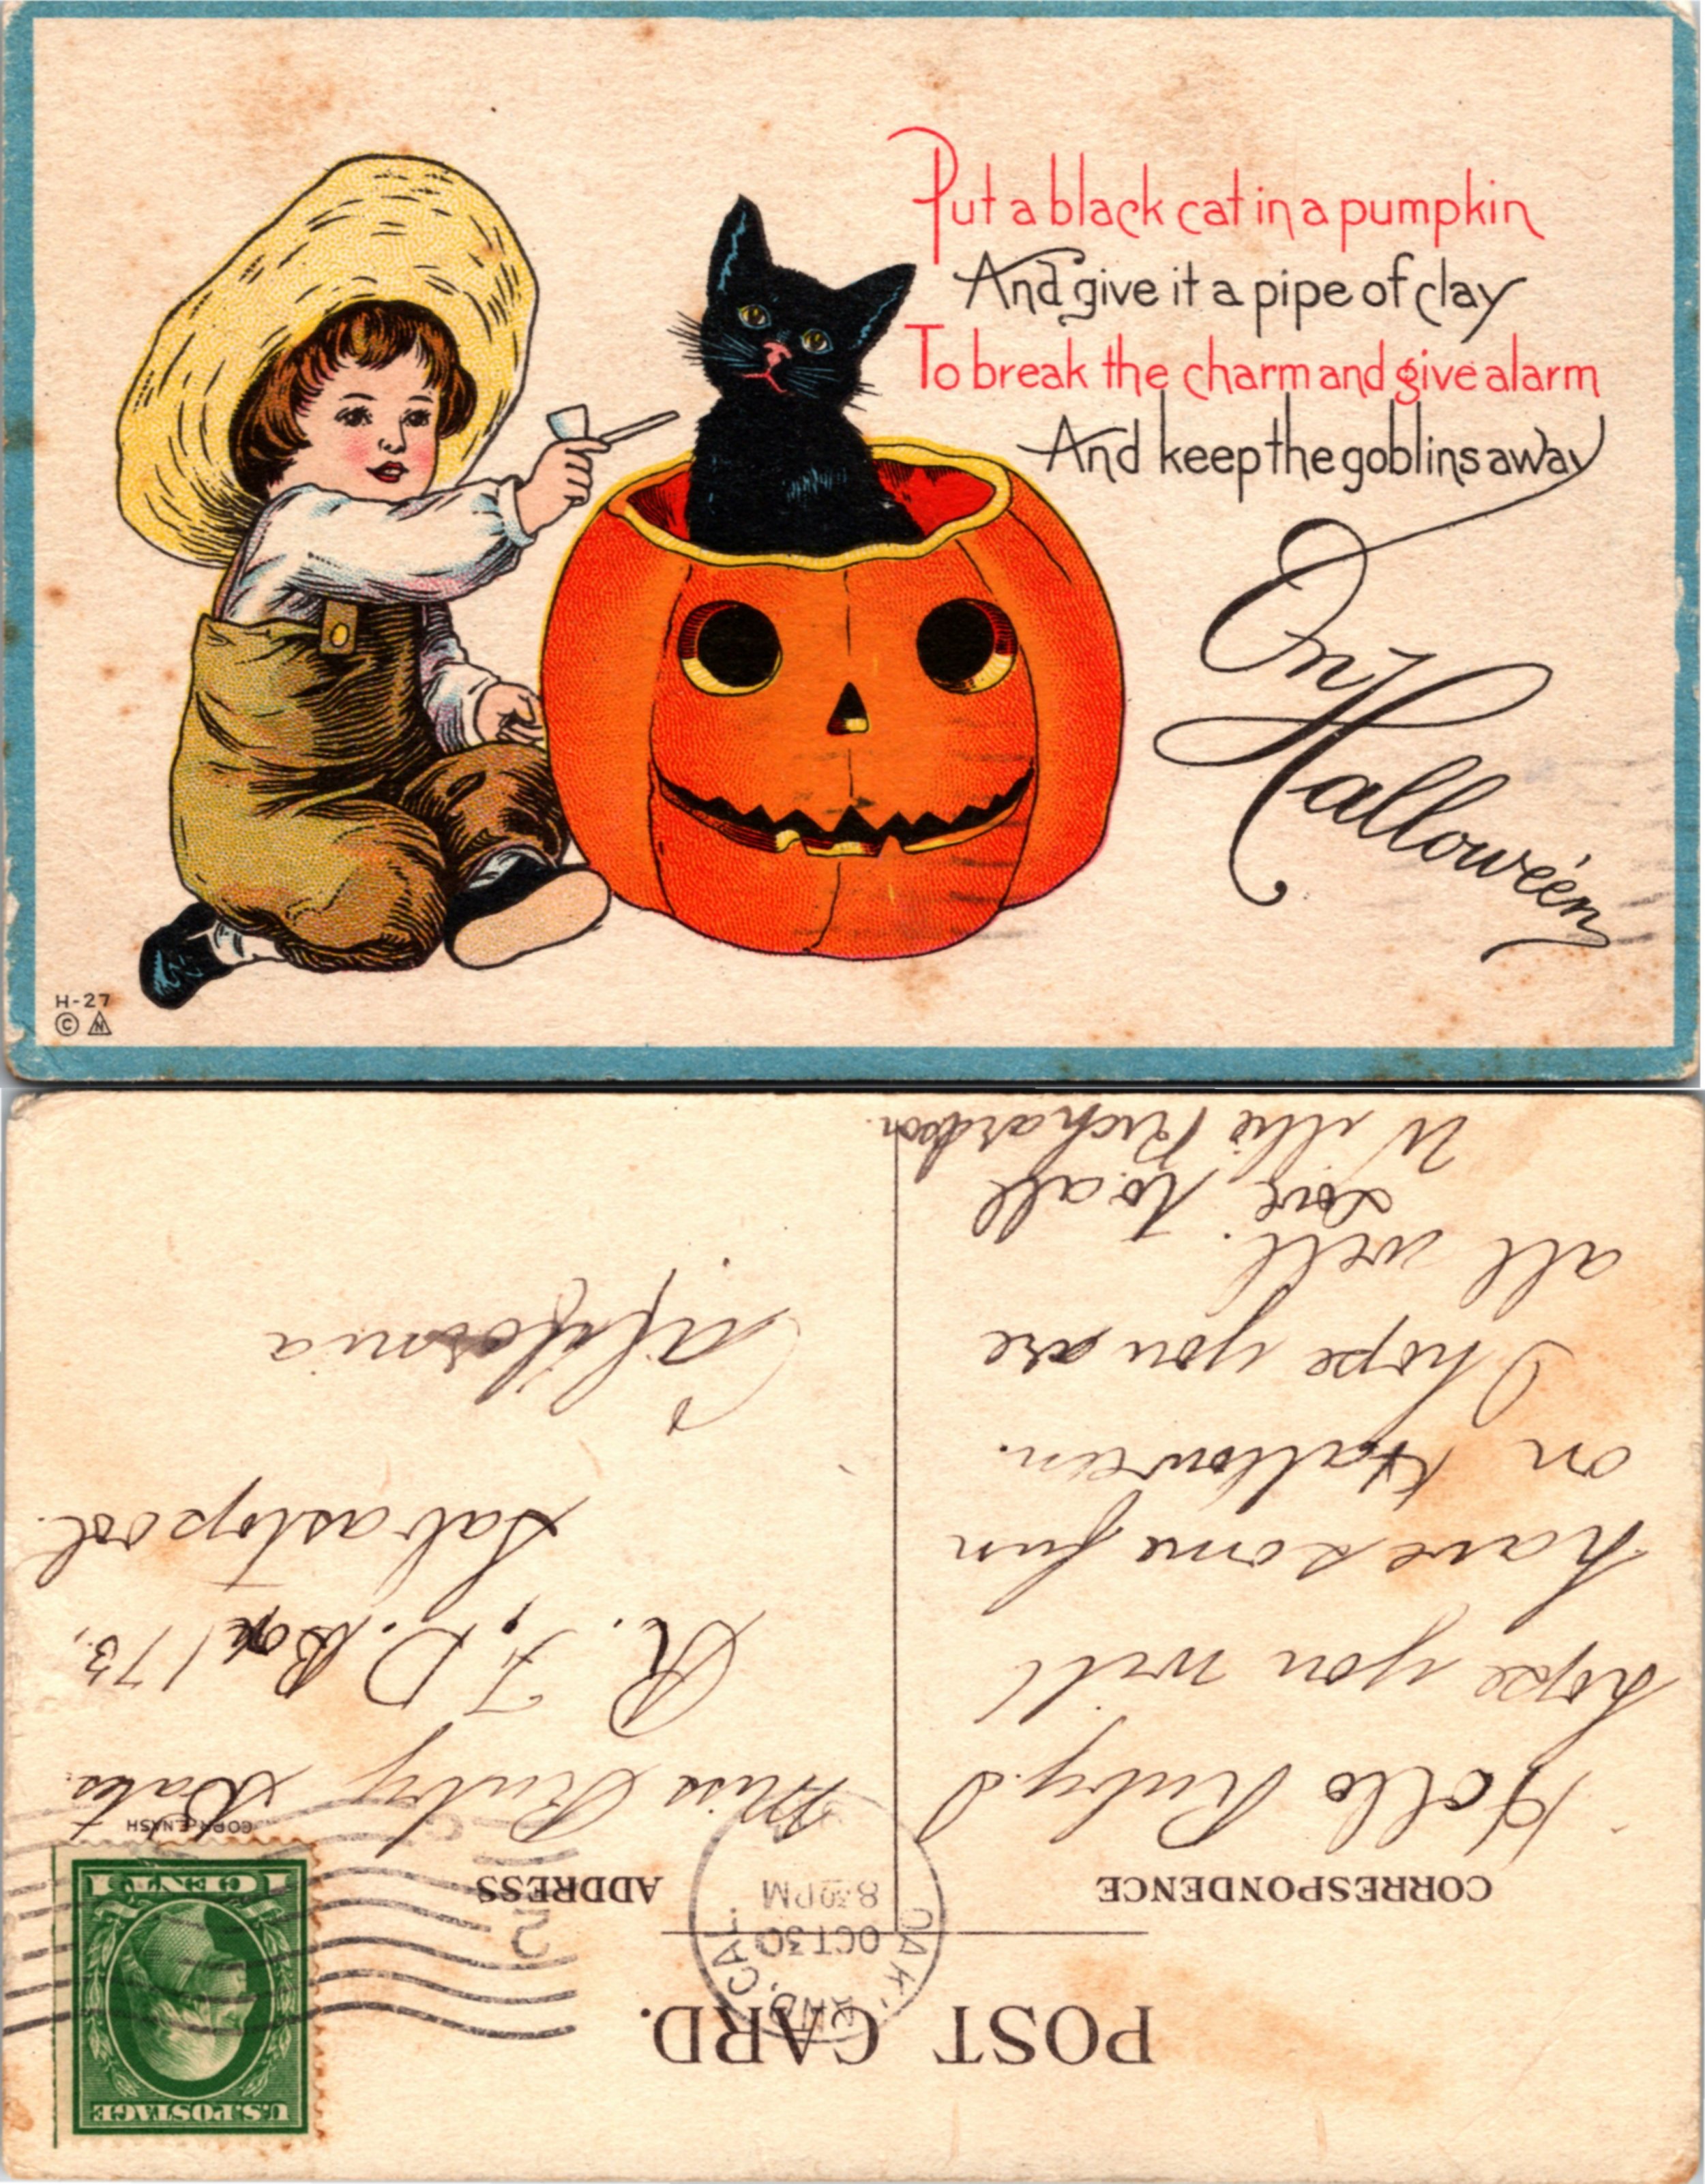 Put a black cat in a pumpkin
And give it a pipe of clay
To break the charm and give alarm
And keep the goblins away
On Hallowe'en
H-27
© N
POST CARD.
CORRESPONDENCE
ADDRESS
U.S. POSTAGE
1 CENT 1
COPR. E. NASH
OAK'AND, CAL.
OCT 30
8 30 PM
Hollo Ruby. I
hope you will
have some fun
on Halloween.
I hope you are
all well.
Love, to all
Willie Richardson.
Miss Ruby Bates.
R. F. D. Box 173,
Sabastopool.
California